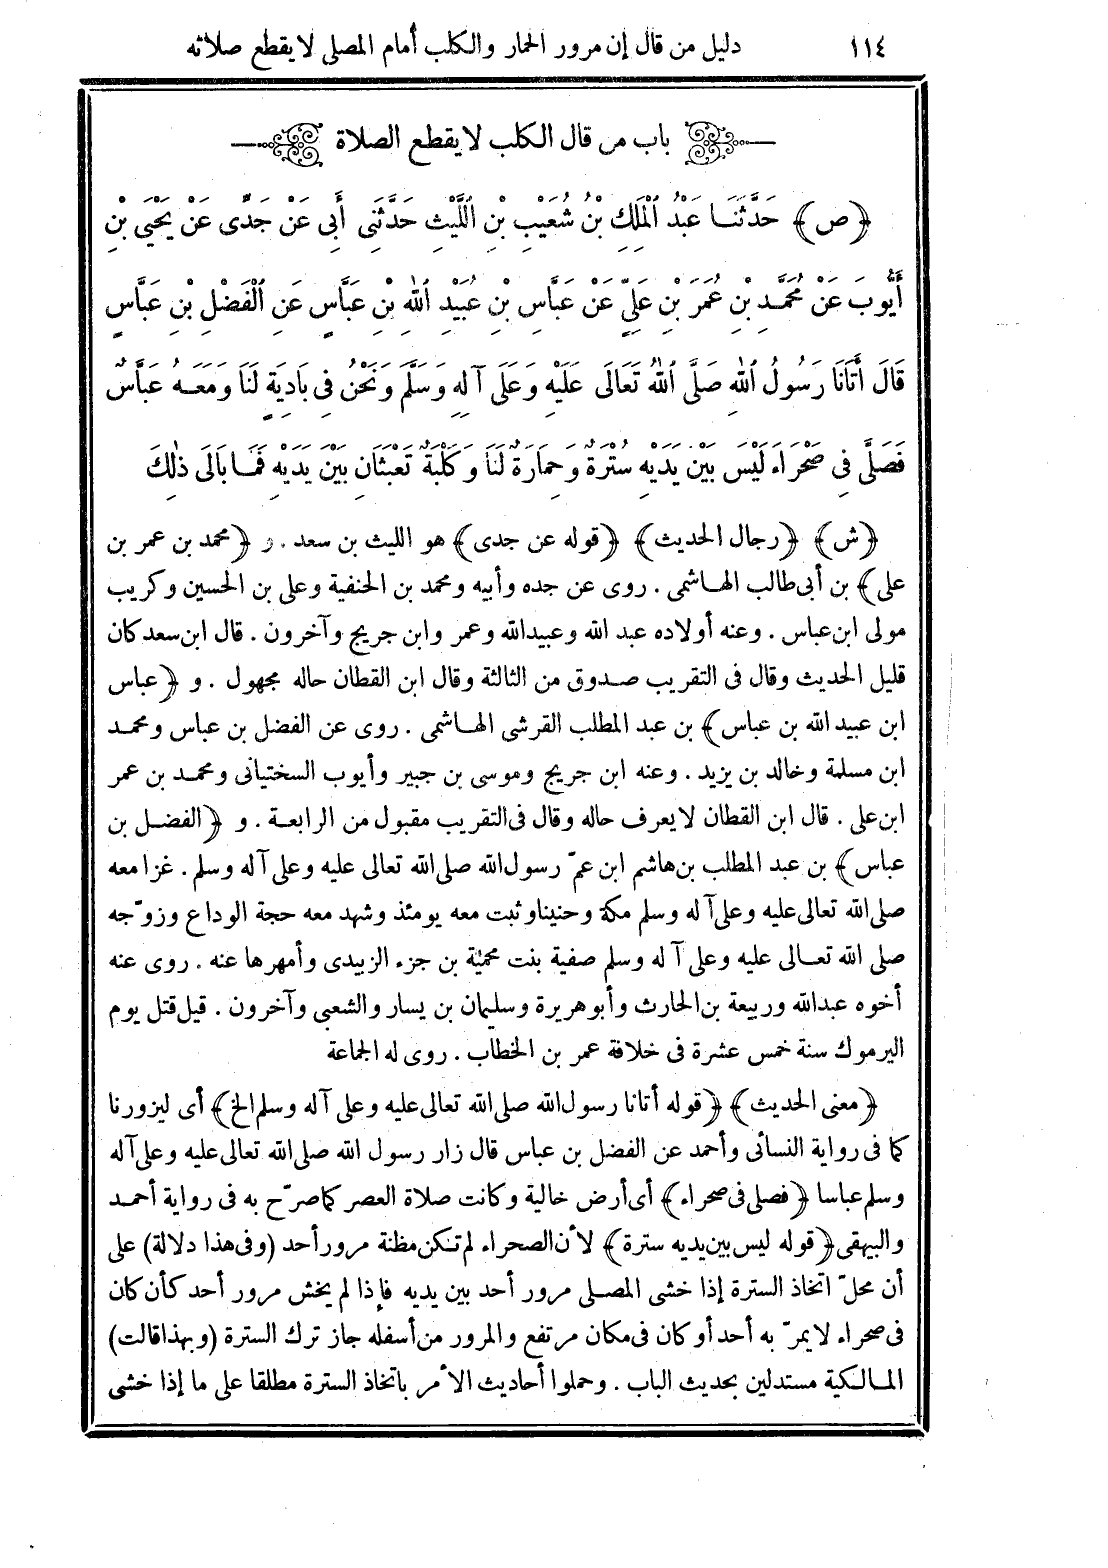 ١١٤ دليل من قال إن مرور الحمار والكلب أمام المصلى لايقطع صلاته
باب من قال الكلب لايقطع الصلاة
﴿ص﴾ حَدَّثَنَا عَبْدُ الْمَلِكِ بْنُ شُعَيْبِ بْنِ اللَّيْثِ حَدَّثَنِى أَبِى عَنْ جَدِّى عَنْ يَحْيَى بْنِ
أَيُّوبَ عَنْ مُحَمَّدِ بْنِ عُمَرَ بْنِ عَلِىٍّ عَنْ عَبَّاسِ بْنِ عُبَيْدِ اللهِ بْنِ عَبَّاسٍ عَنِ الْفَضْلِ بْنِ عَبَّاسٍ
قَالَ أَتَانَا رَسُولُ اللهِ صَلَّى اللهُ تَعَالَى عَلَيْهِ وَعَلَى آلِهِ وَسَلَّمَ وَنَحْنُ فِى بَادِيَةٍ لَنَا وَمَعَهُ عَبَّاسٌ
فَصَلَّى فِى صَحْرَاءَ لَيْسَ بَيْنَ يَدَيْهِ سُتْرَةٌ وَحِمَارَةٌ لَنَا وَكَلْبَةٌ تَعْبَثَانِ بَيْنَ يَدَيْهِ فَمَا بَالَى ذٰلِكَ
﴿ش﴾ ﴿رجال الحديث﴾ ﴿قوله عن جدى﴾ هو الليث بن سعد . و ﴿محمد بن عمر بن
على﴾ بن أبى طالب الهاشمى . روى عن جده وأبيه ومحمد بن الحنفية وعلى بن الحسين وكريب
مولى ابن عباس . وعنه أولاده عبد الله وعبيدالله وعمر وابن جريج وآخرون . قال ابن سعد كان
قليل الحديث وقال فى التقريب صدوق من الثالثة وقال ابن القطان حاله مجهول . و ﴿عباس
ابن عبيد الله بن عباس﴾ بن عبد المطلب القرشى الهاشمى . روى عن الفضل بن عباس ومحمد
ابن مسلمة وخالد بن يزيد . وعنه ابن جريج وموسى بن جبير وأيوب السختيانى ومحمد بن عمر
ابن على . قال ابن القطان لايعرف حاله وقال فى التقريب مقبول من الرابعة . و ﴿الفضل بن
عباس﴾ بن عبد المطلب بن هاشم ابن عمّ رسول الله صلى الله تعالى عليه وعلى آله وسلم . غزا معه
صلى الله تعالى عليه وعلى آله وسلم مكة وحنينا وثبت معه يومئذ وشهد معه حجة الوداع وزوّجه
صلى الله تعالى عليه وعلى آله وسلم صفية بنت محمية بن جزء الزبيدى وأمهرها عنه . روى عنه
أخوه عبدالله وربيعة بن الحارث وأبو هريرة وسليمان بن يسار والشعبى وآخرون . قيل قتل يوم
اليرموك سنة خمس عشرة فى خلافة عمر بن الخطاب . روى له الجماعة
﴿معنى الحديث﴾ ﴿قوله أتانا رسول الله صلى الله تعالى عليه وعلى آله وسلم الخ﴾ أى ليزورنا
كما فى رواية النسائى وأحمد عن الفضل بن عباس قال زار رسول الله صلى الله تعالى عليه وعلى آله
وسلم عباسا ﴿فصلى فى صحراء﴾ أى أرض خالية وكانت صلاة العصر كما صرّح به فى رواية أحمد
والبيهقى ﴿قوله ليس بين يديه سترة﴾ لأن الصحراء لم تكن مظنة مرور أحد (وفى هذا دلالة) على
أن محلّ اتخاذ السترة إذا خشى المصلى مرور أحد بين يديه فإذا لم يخش مرور أحد كأن كان
فى صحراء لا يمرّ به أحد أو كان فى مكان مرتفع والمرور من أسفله جاز ترك السترة (وبهذا قالت)
المالكية مستدلين بحديث الباب . وحملوا أحاديث الأمر باتخاذ السترة مطلقا على ما إذا خشى